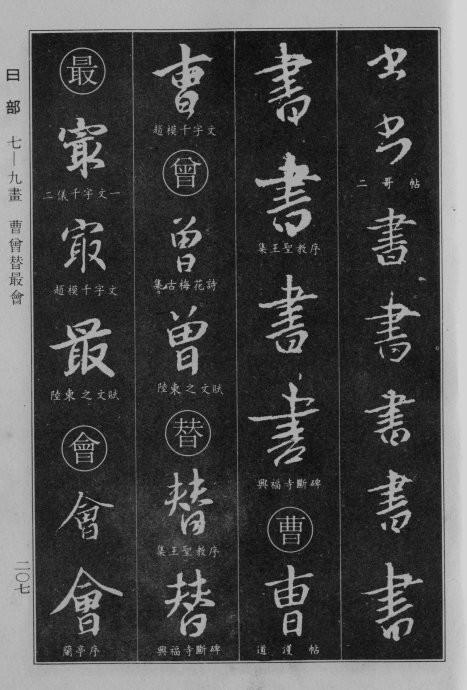 書
書
二哥帖
書
書
書
書
書
書
書
集王聖教序
書
書
興福寺斷碑
曹
曹
道護帖
曹
趙模千字文
曾
曾
集古梅花詩
曾
陸柬之文賦
替
替
集王聖教序
替
興福寺斷碑
最
最
二儀千字文一
最
趙模千字文
最
陸柬之文賦
會
會
會
蘭亭序
曰部 七—九畫 曹曾替最會
二〇七